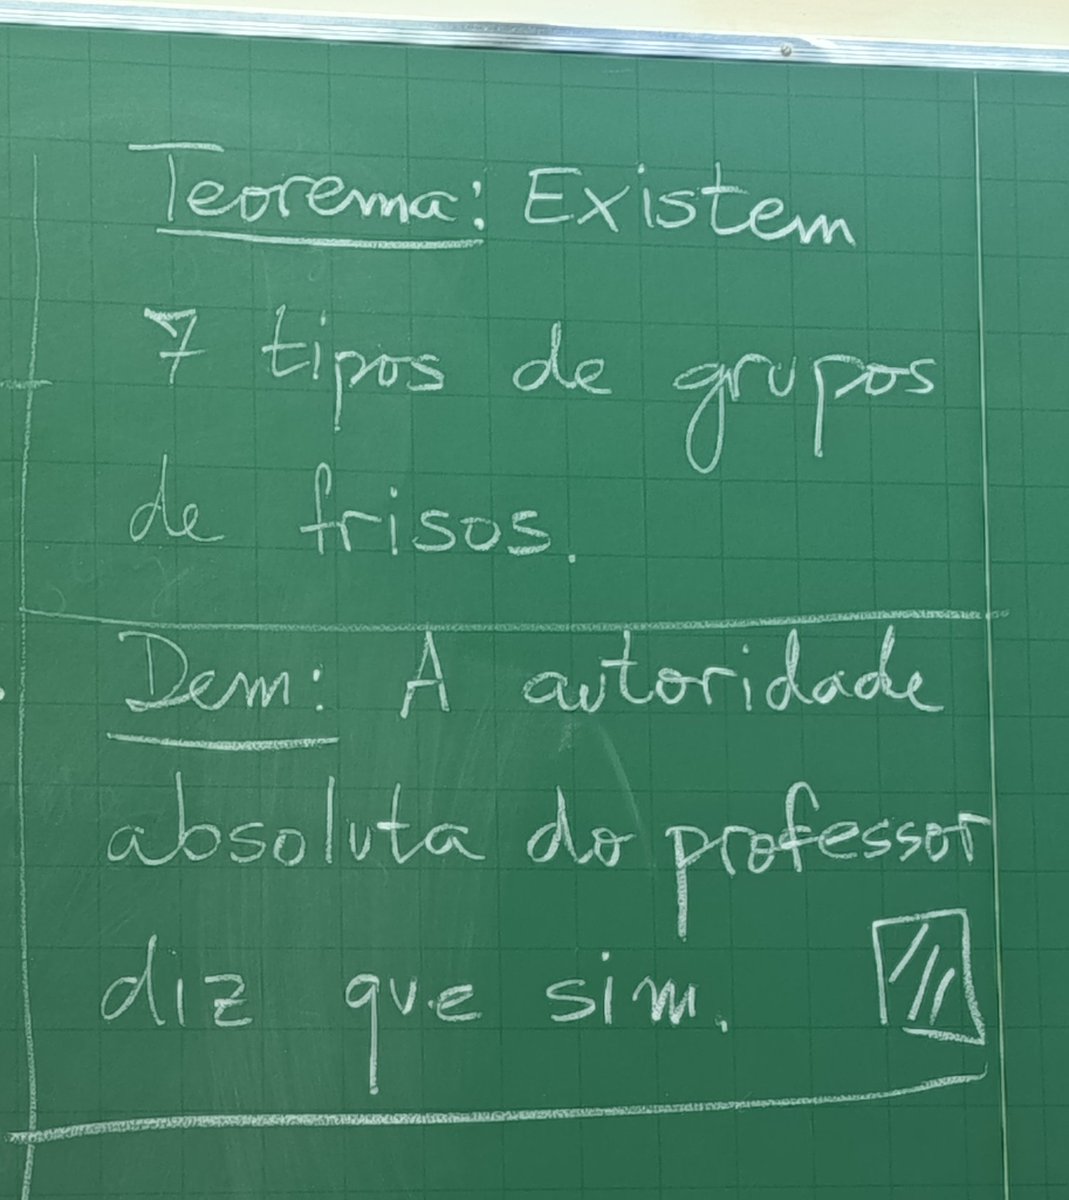 Teorema: Existem
7 tipos de grupos
de frisos.
Dem: A autoridade
absoluta do professor
diz que sim.